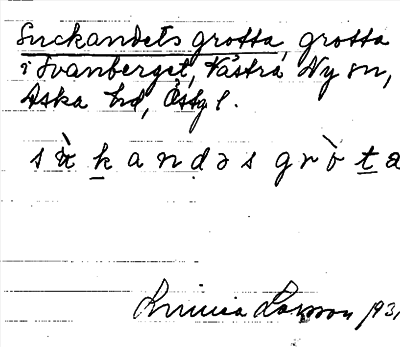 Suckandets grotta, grotta
i Svanberget, Västra Ny sn,
Aska hd, Östgl.
sùkandəsgròta
Linnea Larsson 1931